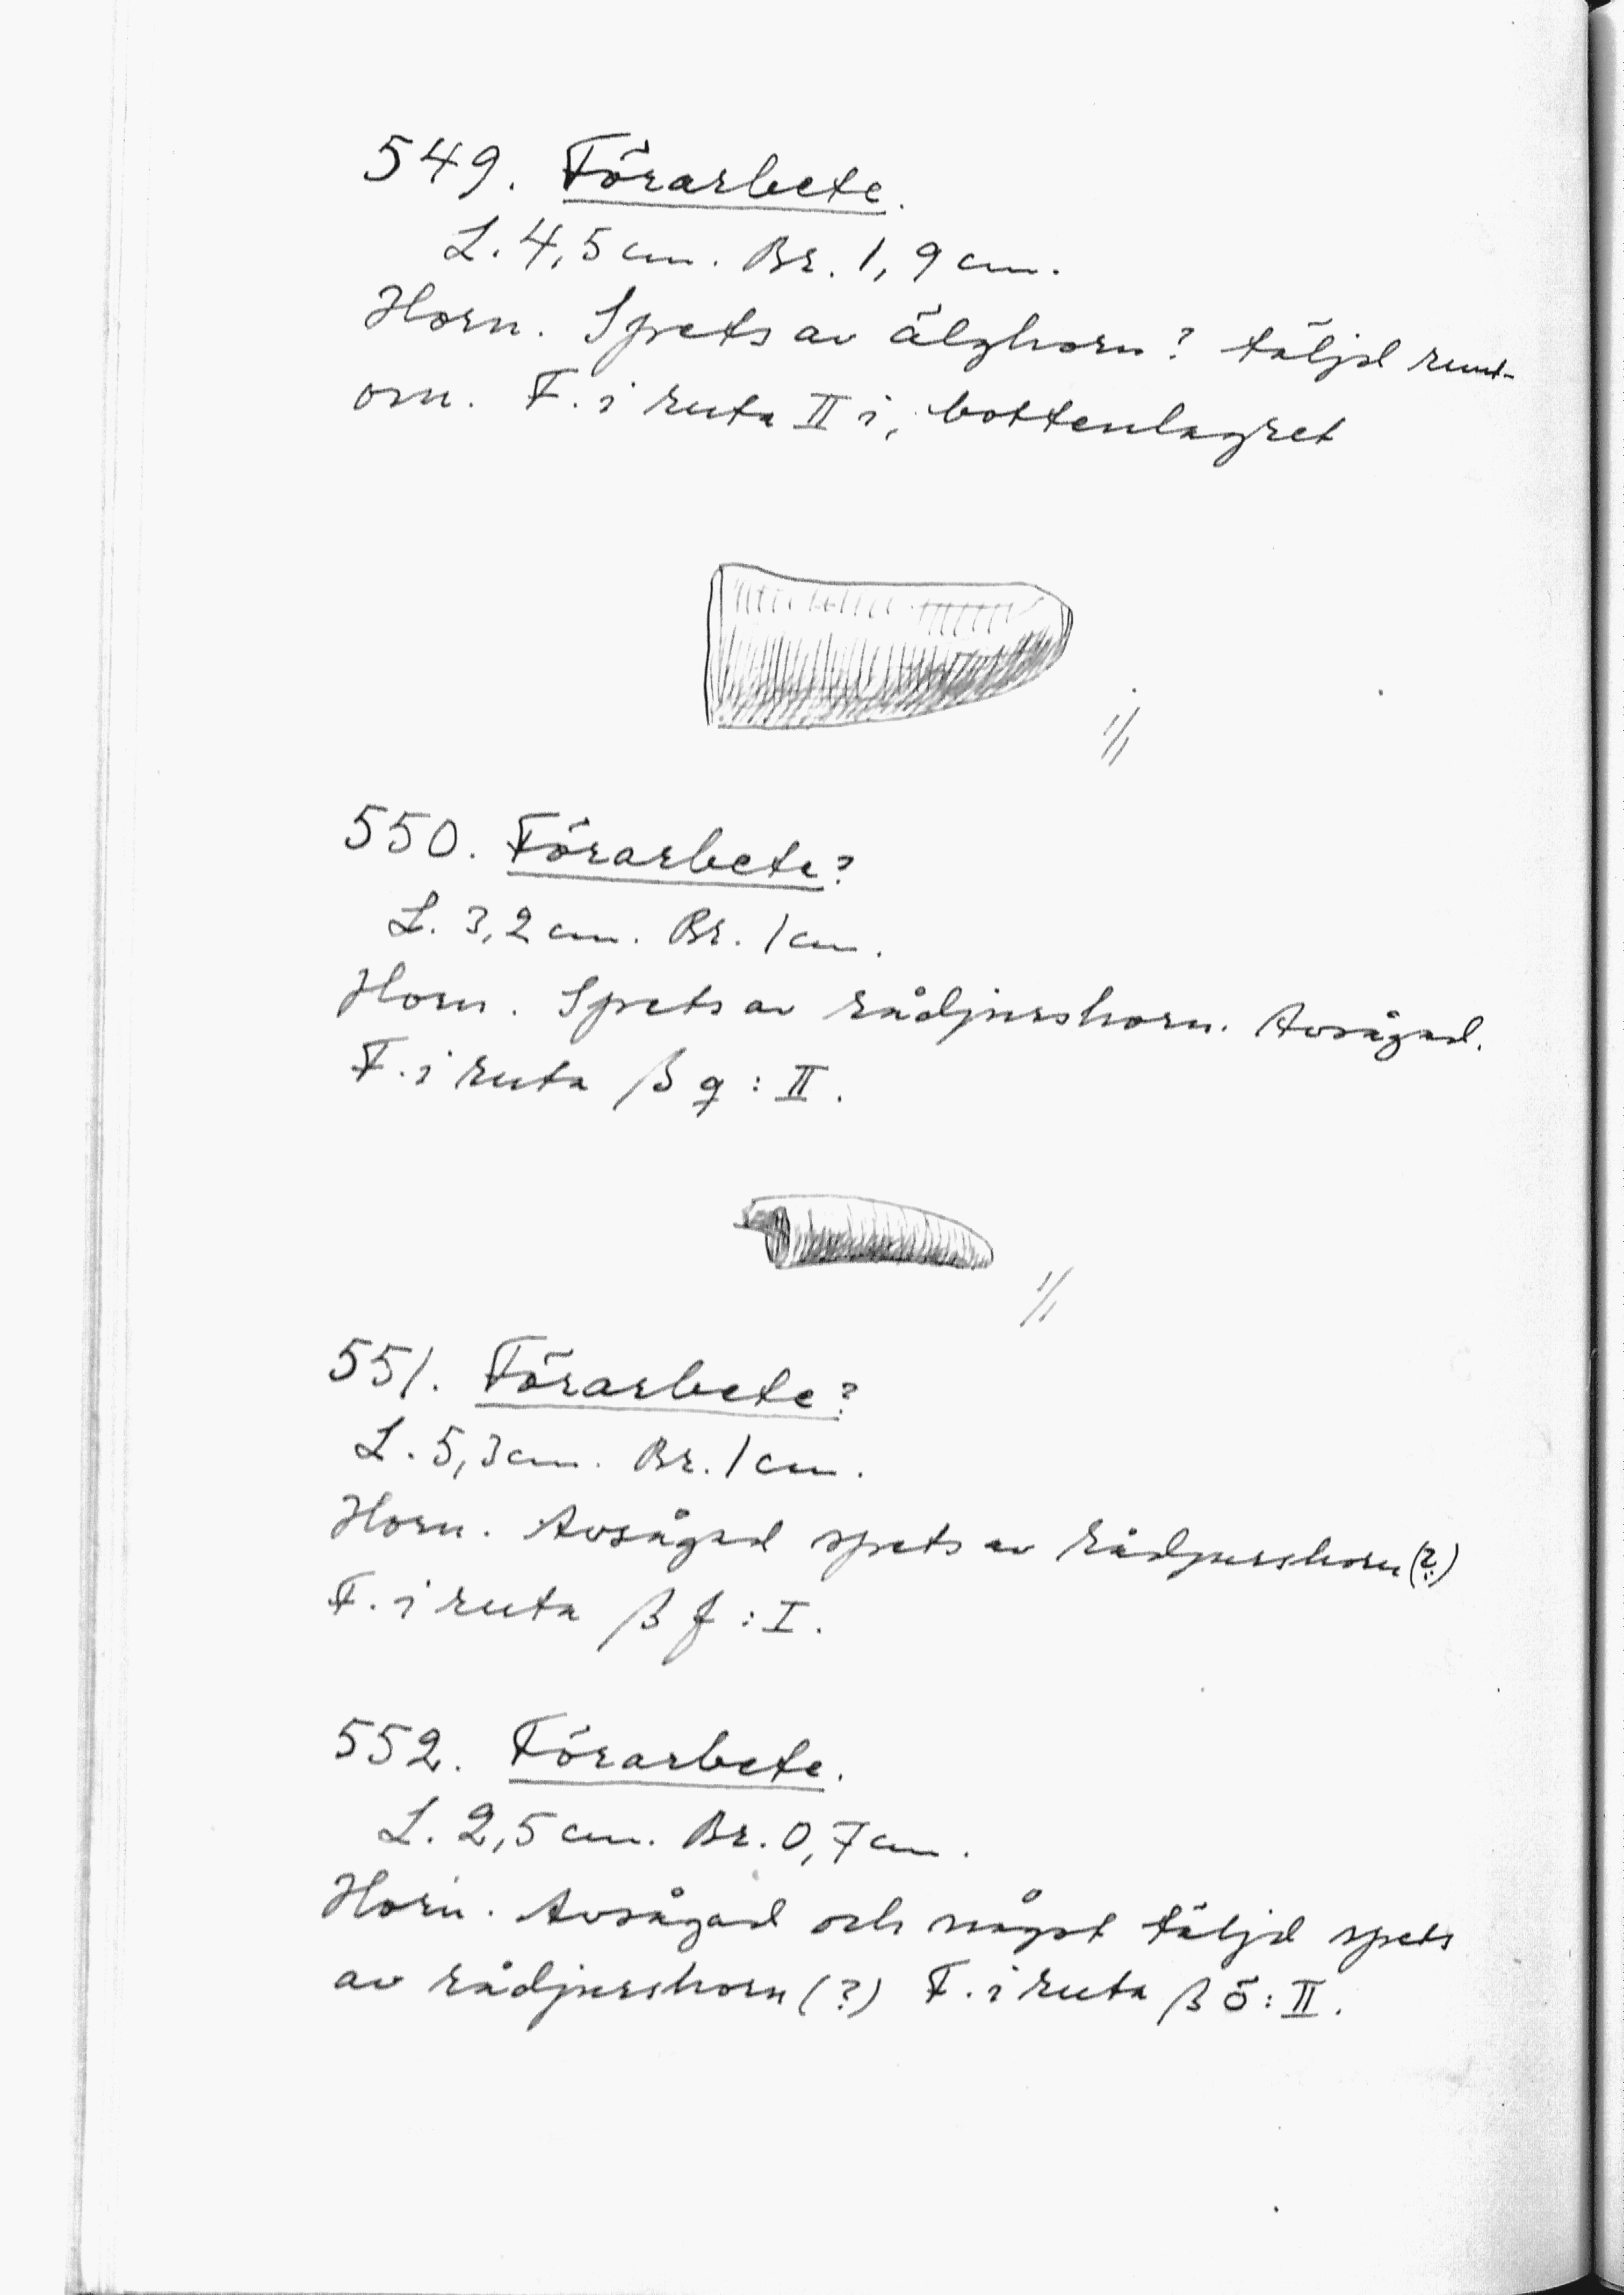 549. Förarbete.
L. 4,5 cm. Br. 1,9 cm.
Horn. Spets av älghorn? täljd runt-
om. F. i ruta II i, bottenlagret
1/1
550. Förarbete?
L. 3,2 cm. Br. 1 cm.
Horn. Spets av rådjurshorn. Avsågad.
F. i ruta β g : II.
1/1
551. Förarbete?
L. 5,3 cm. Br. 1 cm.
Horn. Avsågad spets av rådjurshorn (?)
F. i ruta β f : I.
552. Förarbete.
L. 2,5 cm. Br. 0,7 cm.
Horn. Avsågad och något täljd spets
av rådjurshorn (?) F. i ruta β ö : II.